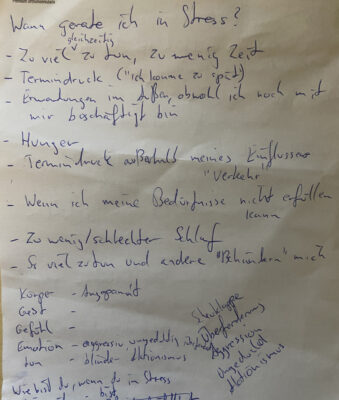 Wann gerate ich in Stress?
- Zu viel gleichzeitig zu tun, zu wenig Zeit
- Termindruck ("ich komme zu spät")
- Erwartungen im Außen, obwohl ich noch mit
mir beschäftigt bin
- Hunger
- Termindruck außerhalb meines Einflusses
"Verkehr"
- Wenn ich meine Bedürfnisse nicht erfüllen
kann
- Zu wenig/schlechter Schlaf
- So viel zu tun und andere "Behindern" mich
Körper - Angespannt
Geist -
Gefühl -
Emotion - aggressiv, ungeduldig
tun - blinder Aktionismus
Scheuklappe
Überforderung
Aggression
Ungeduld
Aktionismus
Wie bist du, wenn du im Stress
bist